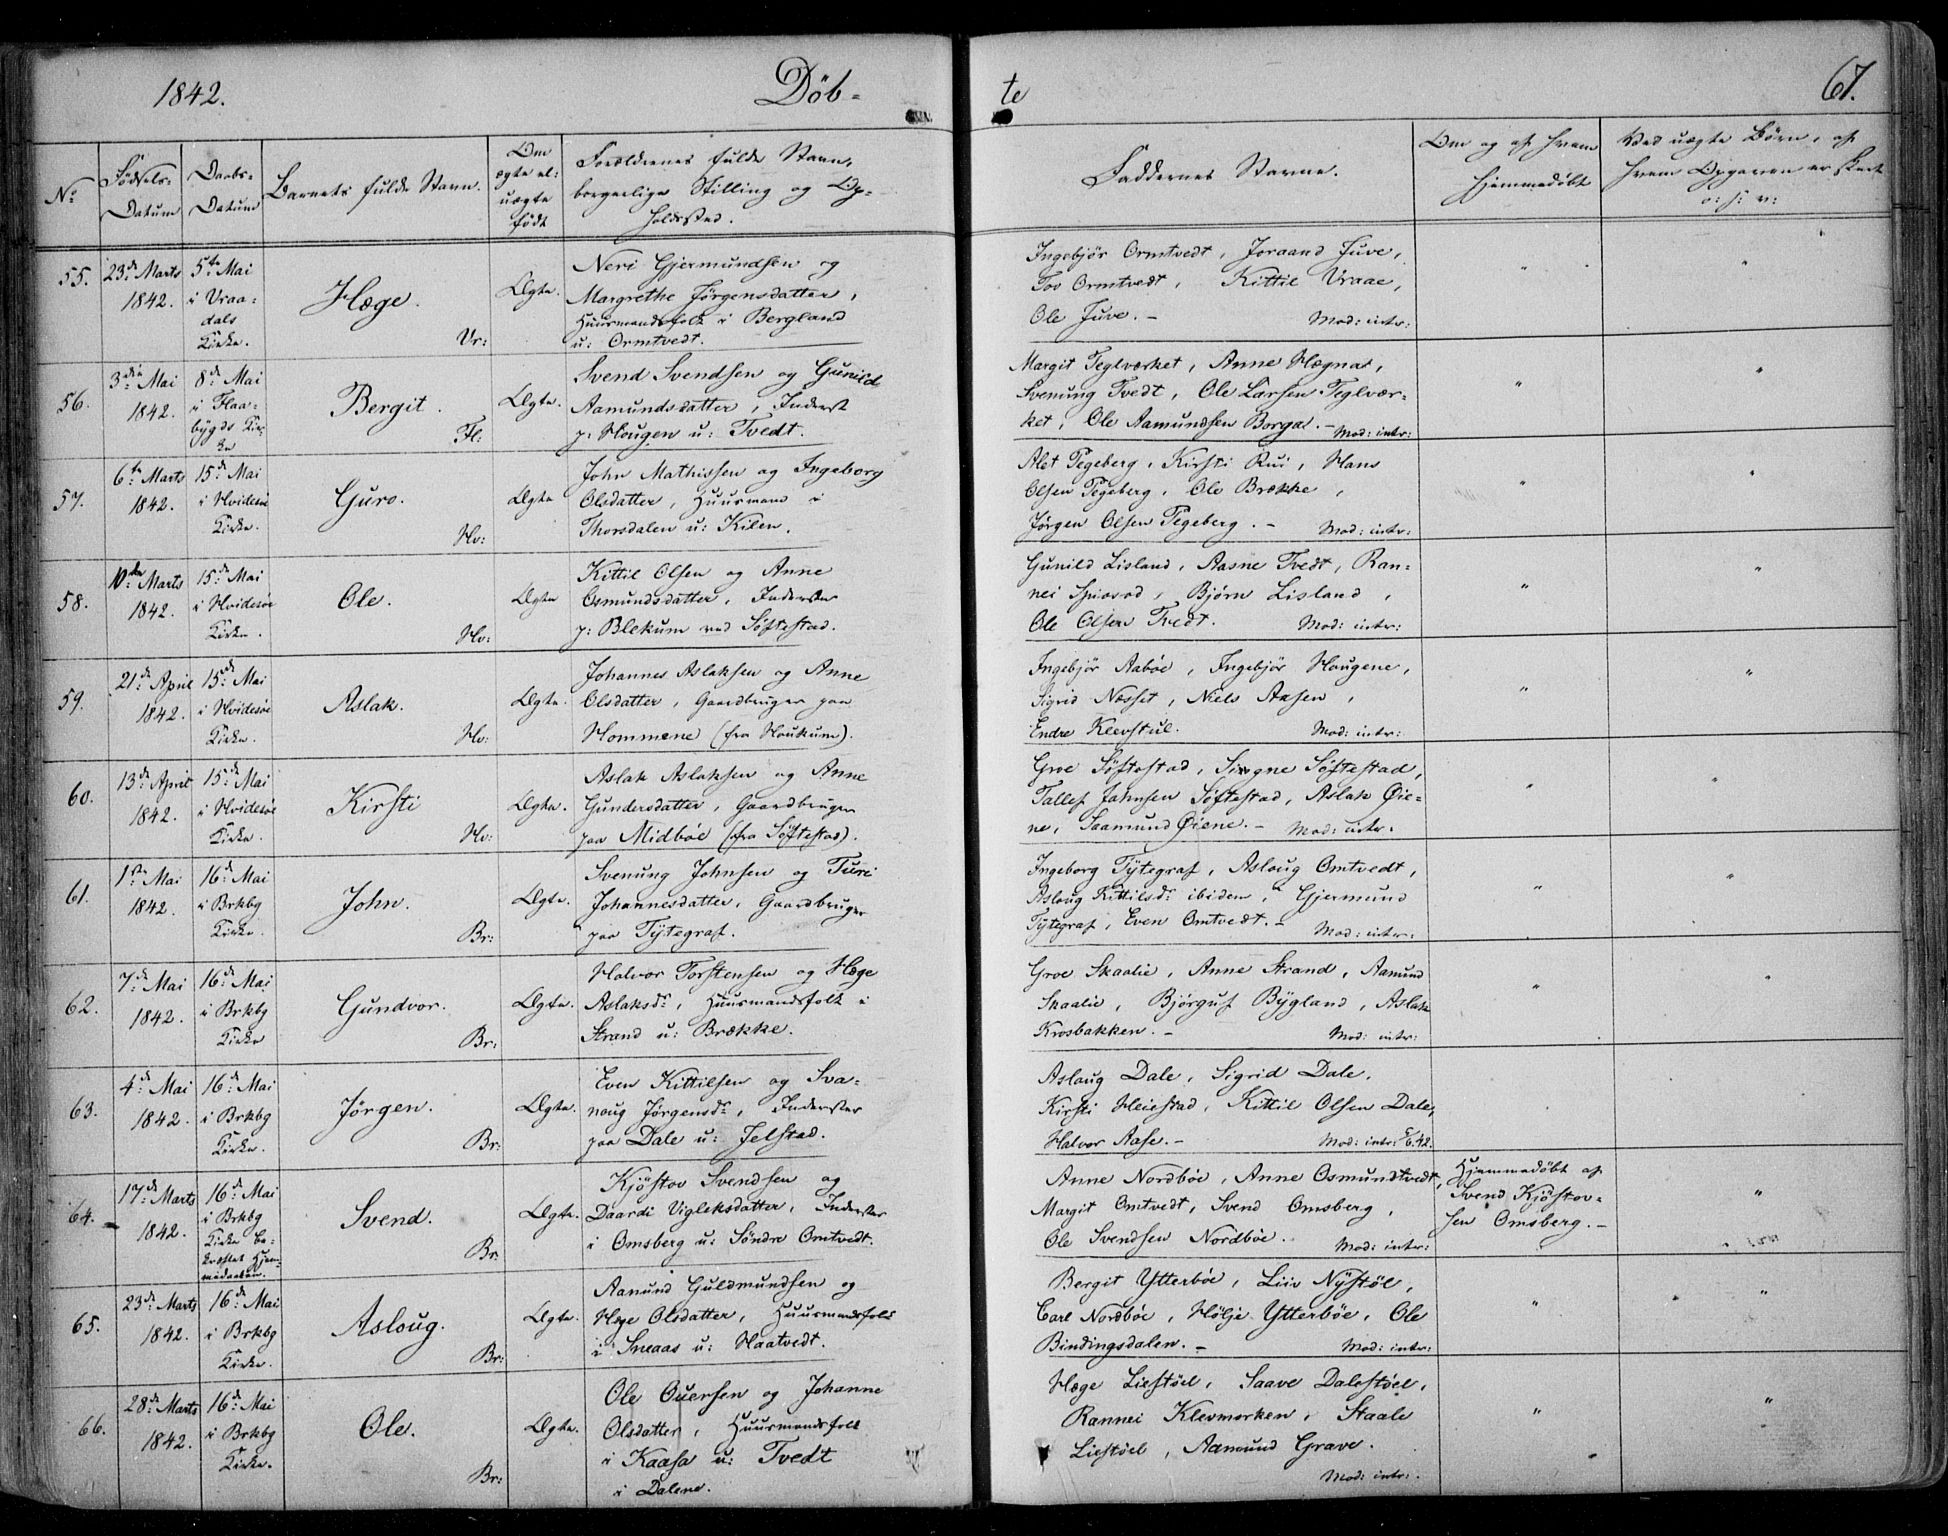 1842.
Döb-
te
67.
No
Födsels-
Datum
Daabs-
Datum
Barnets fulde Navn.
Om
ægte el:
uægte
födt
Forældrenes fulde Navn,
borgerlige Stilling og Op-
holdssted.
Faddernes Navne.
Om og af hvem
hjemmedöbt
Ved uægte Börn, af
hvem Opgaven er skeet
o: s: v:
55.
23de Marts
1842.
5te Mai
i Vraa-
dals
Kirke.
Hæge.
Vr:
Ægte.
Neri Gjermundsen og
Margrethe Jörgensdatter,
Huusmandsfolk i Bergland
u: Ormtvedt.
Ingebjör Ormtvedt, Joraand Juve,
Tov Ormtvedt, Kittil Vraae,
Ole Juve. -
Mod: intr:
"
"
56.
3die Mai
1842.
8de Mai
i Flaa-
bygds Kir-
ke
Bergit.
Fl:
Ægte.
Svend Svendsen og Gunild
Aamundsdatter, Inderst
p: Hougen u: Tvedt.
Margit Teglværket, Anne Hægnar,
Svenung Tvedt, Ole Larsen Teglvær-
ket, Ole Aamundsen Borgar. -
Mod: intr:
"
"
57.
6te Marts
1842.
15de Mai
i Hvidesöe
Kirke.
Guro.
Hv:
Ægte
John Mathissen og Ingeborg
Olsdatter, Huusmand i
Thorsdalen u: Kilen.
Alet Tegeberg, Kirsti Rui, Hans
Olsen Tegeberg, Ole Brække,
Jörgen Olsen Tegeberg. -
Mod: intr:
"
"
58.
10de Marts
1842.
15de Mai
i Hvidesöe
Kirke.
Ole.
Hv:
Ægte
Kittil Olsen og Anne
Osmundsdatter, Inderster
p: Blekum ved Söftestad.
Gunild Lisland, Aasne Tvedt, Ran-
nei Spiosod, Björn Lisland,
Ole Olsen Tvedt.
Mod: intr:
"
"
59.
21de April
1842.
15de Mai
i Hvidesöe
Kirke.
Aslak.
Hv:
Ægte.
Johannes Aslaksen og Anne
Olsdatter, Gaardbruger paa
Hommene (fra Houkum).
Ingebjör Aaböe, Ingebjör Haugene,
Sigrid Næsset, Niels Aasen,
Endre Kleivstul.
Mod: intr:
"
"
60.
13de April
1842.
15de Mai
i Hvidesöe
Kirke.
Kirsti
Hv:
Ægte.
Aslak Aslaksen og Anne
Gundersdatter, Gaardbruger
paa Midböe (fra Söftestad).
Groe Söftestad, Signe Söftestad,
Tallef Johnsen Söftestad, Aslak Öie-
ne, Saamund Öiene. -
Mod: intr.
"
"
61.
1ste Mai
1842.
16de Mai
i Brkbg
Kirke.
John.
Br:
Ægte.
Svenung Johnsen og Turi
Johannesdatter, Gaardbruger
paa Tÿtegraf.
Ingeborg Tÿtegraf, Asloug Omtvedt,
Asloug Kittilsdr ibidem, Gjermund
Tÿtegraf, Even Omtvedt. -
Mod: intr:
"
"
62.
7de Mai
1842.
16de Mai
i Brkbg
Kirke
Gundvor.
Br:
Ægte.
Halvor Torstensen og Hæge
Aslaksdr, Huusmandsfolk i
Strand u: Brække.
Groe Skaalie, Anne Strand, Aamund
Skaalie, Björguf Bÿgland, Aslak
Krosbakken. -
Mod: intr:
"
"
63.
4de Mai
1842.
16de Mai
i Brkbg
Kirke.
Jörgen.
Br:
Ægte.
Even Kittilsen og Sva-
noug Jörgensdr, Inderster
paa Dale u: Jelstad.
Asloug Dale, Sigrid Dale,
Kirsti Heiestad, Kittil Olsen Dale,
Halvor Aase. -
Mod: intr:
64.
17de Marts
1842.
16de Mai
i Brkbg
Kirke be-
kræftet Hjem-
medaaben.
Svend.
Br:
Ægte.
Kjöstov Svendsen og
Daardi Vigleksdatter, Inderster
i Omsberg u: Söndre Omtvedt.
Anne Nordböe, Anne Osmundtvedt,
Margit Omtvedt, Svend Omsberg,
Ole Svendsen Nordböe.
Mod: intr:
Hjemmedöbt af
Svend Kjöstov-
sen Omsberg. -
"
65.
23de Marts
1842.
16de Mai
i Brkbg
Kirke.
Asloug.
Br:
Ægte.
Aamund Guldmundsen og
Hæge Olsdatter, Huusmandsfolk
i Sneaas u: Haatvedt.
Bergit Ytterböe, Liiv Nÿstöl,
Carl Nordböe, Hölje Ytterböe, Ole
Bindingsdalen. -
Mod: intr:
"
"
66.
28de Marts
1842.
16de Mai
i Brkbg
Kirke.
Ole.
Br:
Ægte.
Ole Ouersen og Johanne
Olsdatter, Huusmandsfolk
i Kaasa u: Tvedt
i Dalene.
Hæge Liestöel, Saave Dalestöel,
Rannei Klevmorken, Staale
Liestöel, Aamund Grave.
Mod: intr:
"
"